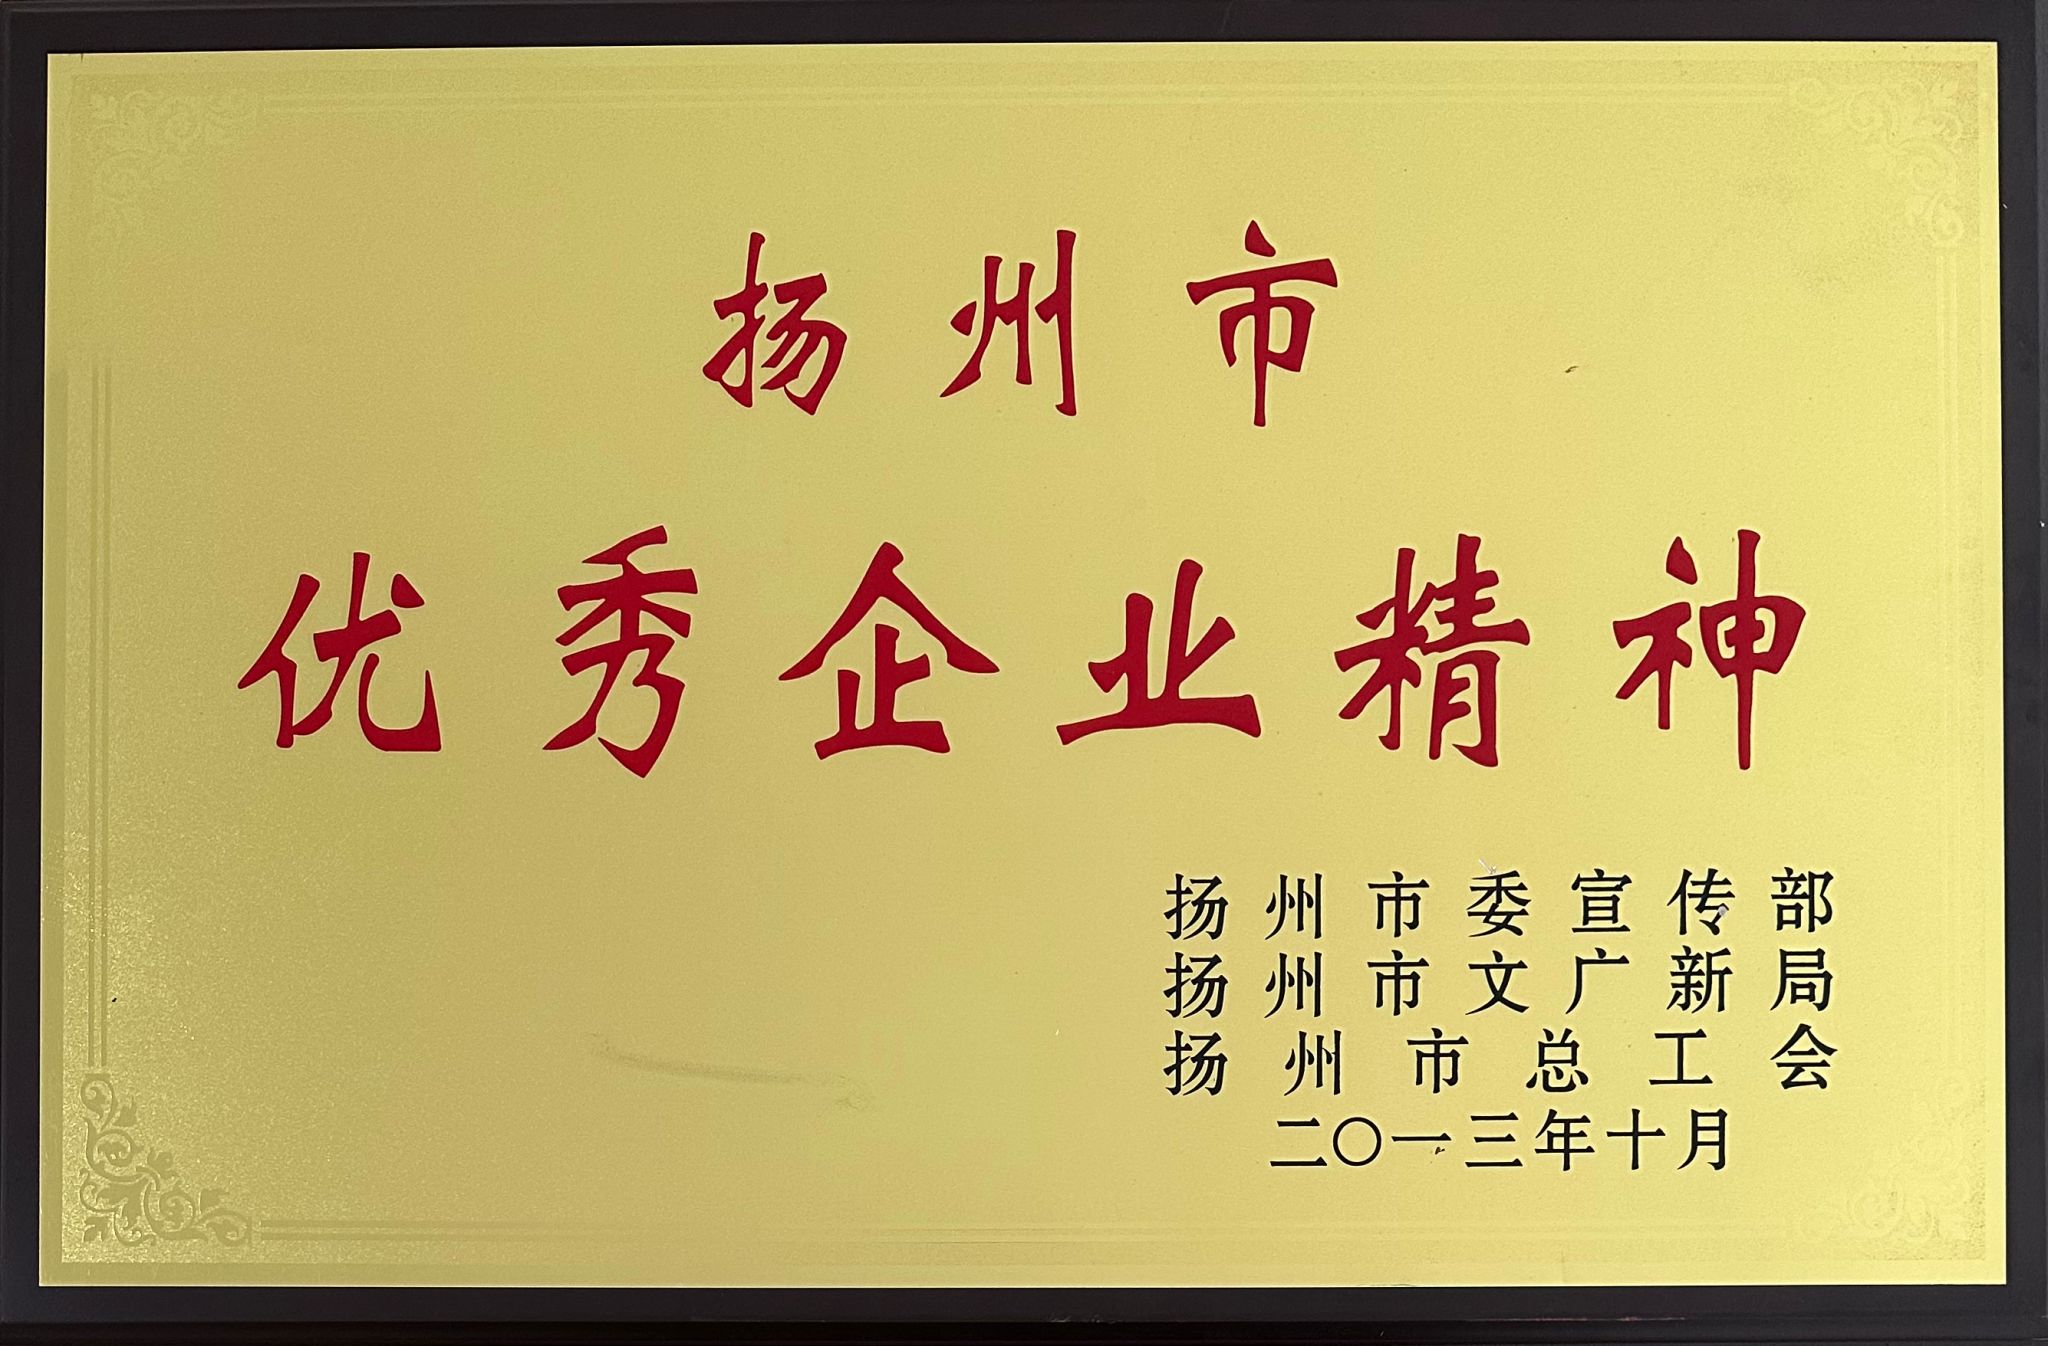 扬州市
优秀企业精神
扬州市委宣传部
扬州市文广新局
扬州市总工会
二〇一三年十月